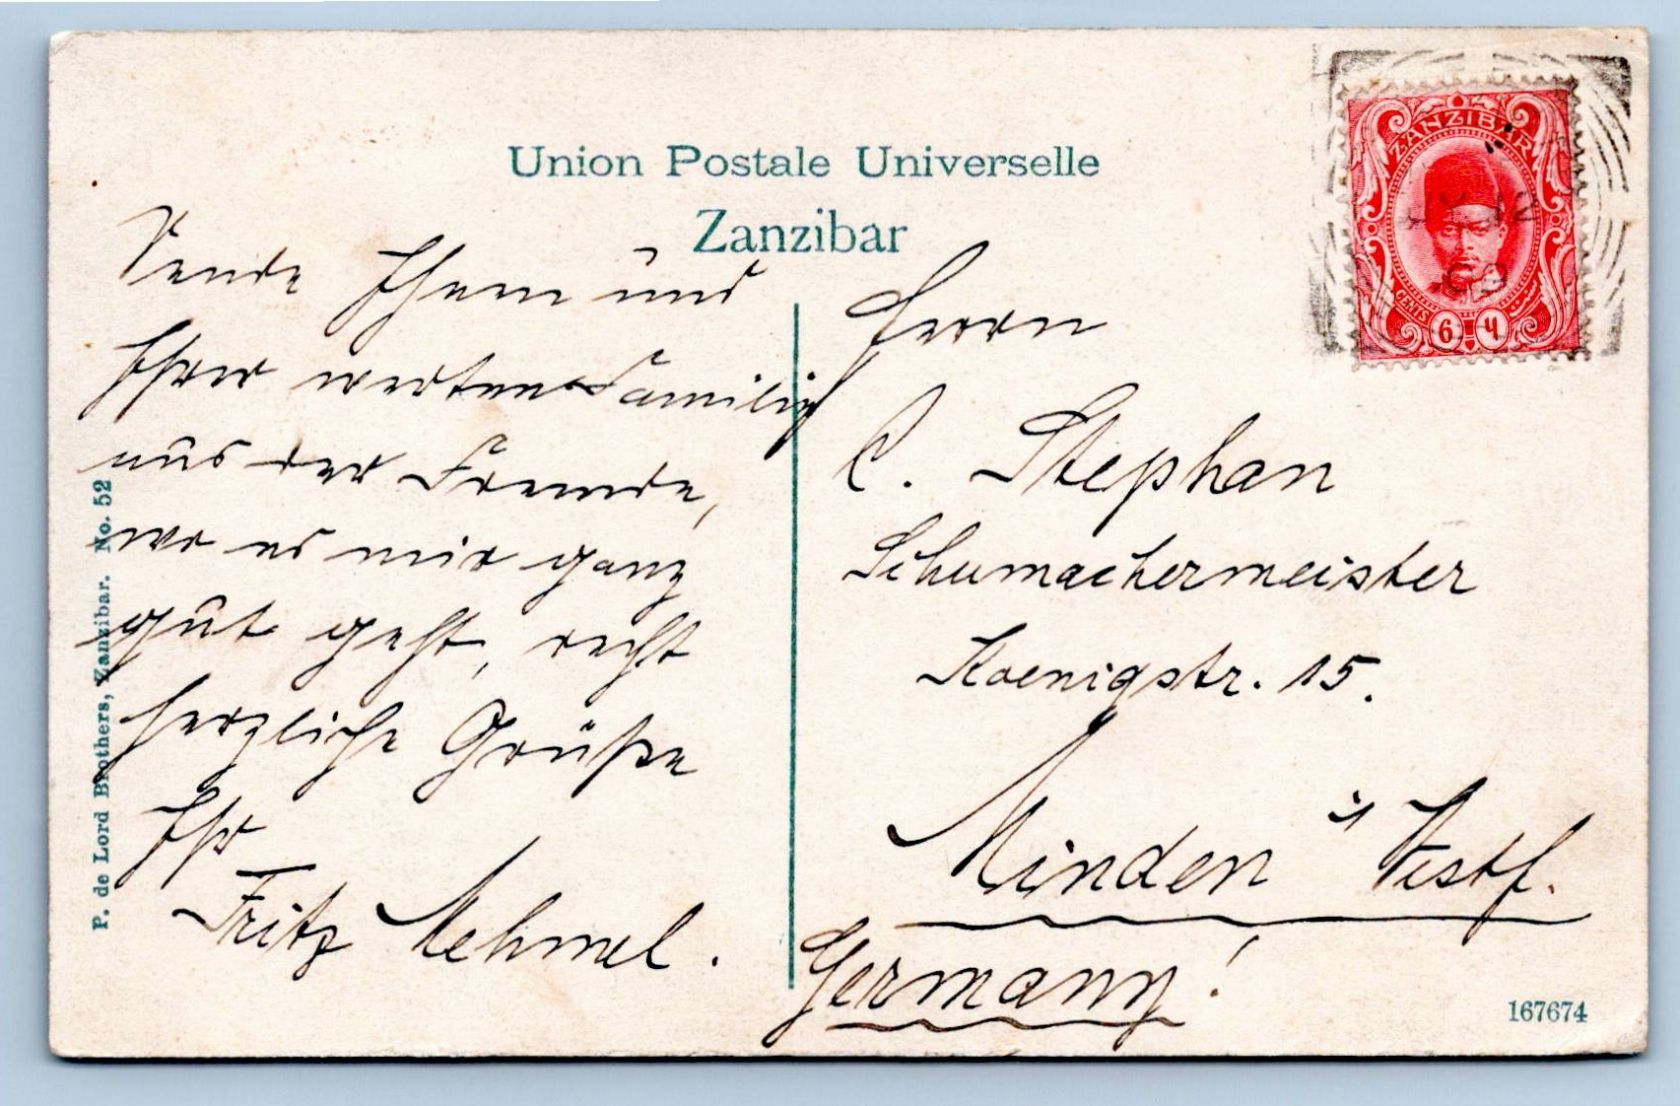 Union Postale Universelle
Zanzibar
ZANZIBAR
CENTS
6
Sende Ihnen und
Ihrer werten Familie
aus der Fremde,
wo es mir ganz
gut geht, recht
herzliche Grüße
Ihr
Fritz Mehmel.
Herrn
C. Stephan
Schumachermeister
Koenigstr. 15.
Minden i/ Westf.
Germany!
P. de Lord Brothers, Zanzibar. No. 52
167674